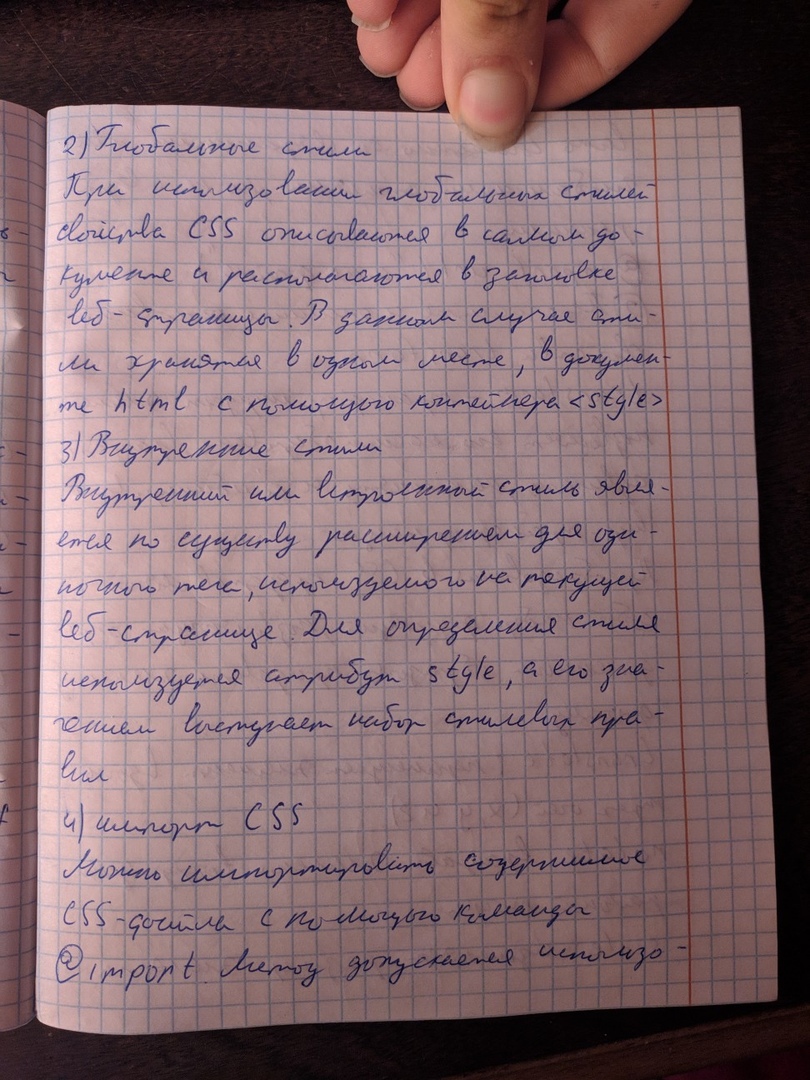 2) Глобальные стили
При использовании глобальных стилей
свойства CSS описываются в самом до-
кументе и располагаются в заголовке
веб-страницы. В данном случае сти-
ли хранятся в одном месте, в докумен-
те html с помощью контейнера <style>
3) Внутренние стили
Внутренний или встроенный стиль явля-
ется по существу расширением для оди-
ночного тега, используемого на текущей
веб-странице. Для определения стиля
используется атрибут style, а его зна-
чением выступает набор стилевых пра-
вил
4) импорт CSS
Можно импортировать содержимое
CSS-файла с помощью команды
@import. Метод допускается использо-